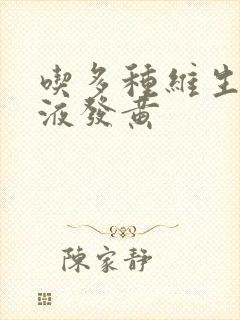 喫多種維生
液發黃
陳家靜